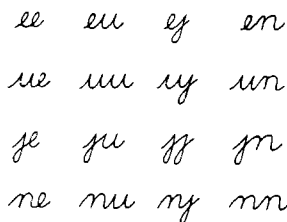 ee eu ej en
ue uu uj un
je ju jj jn
ne nu nj nn